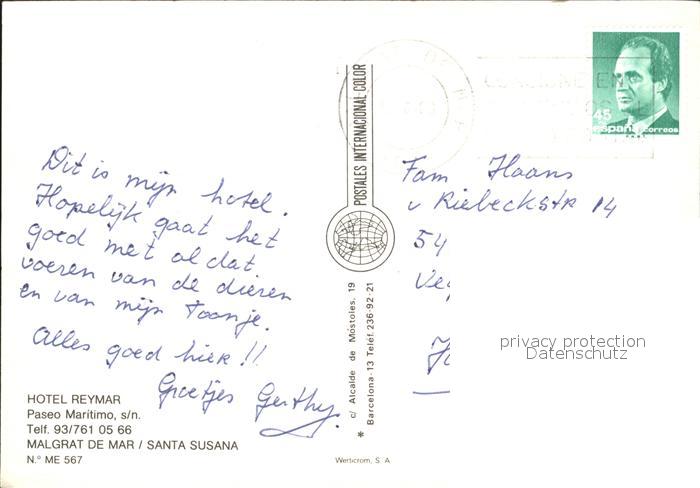 Dit is mijn hotel.
Hopelijk gaat het
goed met al dat
voeren van de dieren
en van mijn Toonje.
Alles goed hier!!
Groetjes Gerthy.
HOTEL REYMAR
Paseo Marítimo, s/n.
Telf. 93/761 05 66
MALGRAT DE MAR / SANTA SUSANA
N.º ME 567
POSTALES INTERNACIONAL COLOR
c/ Alcalde de Móstoles, 19
* Barcelona-13 Teléf. 236-92-21
Werticrom, S. A.
45
españa correos
Fam Haans
v Riebeckstr 14
54
privacy protection
Datenschutz